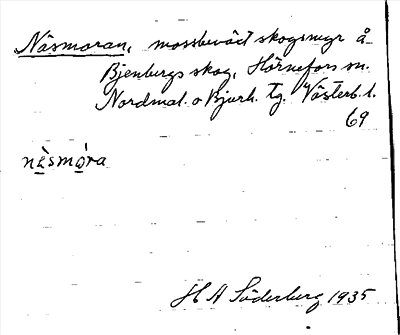 Näsmoran, mossbeväxt skogsmyr å
Bjenbergs skog, Hörnefors sn.
Nordmal. o Bjurh. tg. Västerb. l.
69
nè̱smò̱ra
H A Söderberg 1935